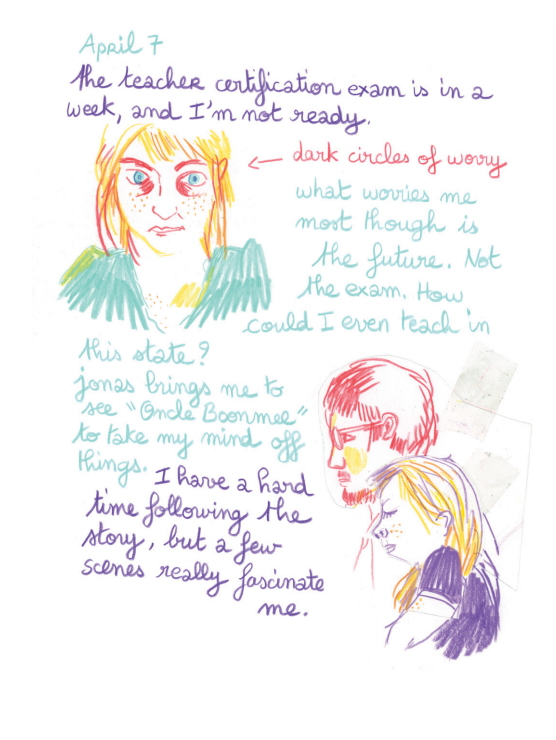 April 7
the teacher certification exam is in a
week, and I'm not ready.
dark circles of worry
what worries me
most though is
the future. Not
the exam. How
could I even teach in
this state?
jonas brings me to
see "Oncle Boonmee"
to take my mind off
things.
I have a hard
time following the
story, but a few
scenes really fascinate
me.